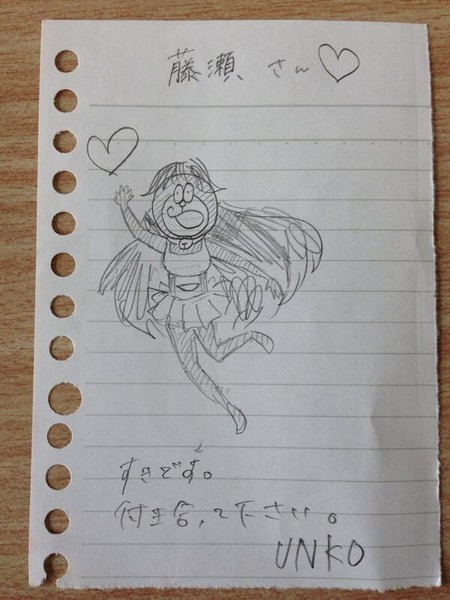 藤瀬 さん♡
すきです。
付き合って下さい。
UNKO